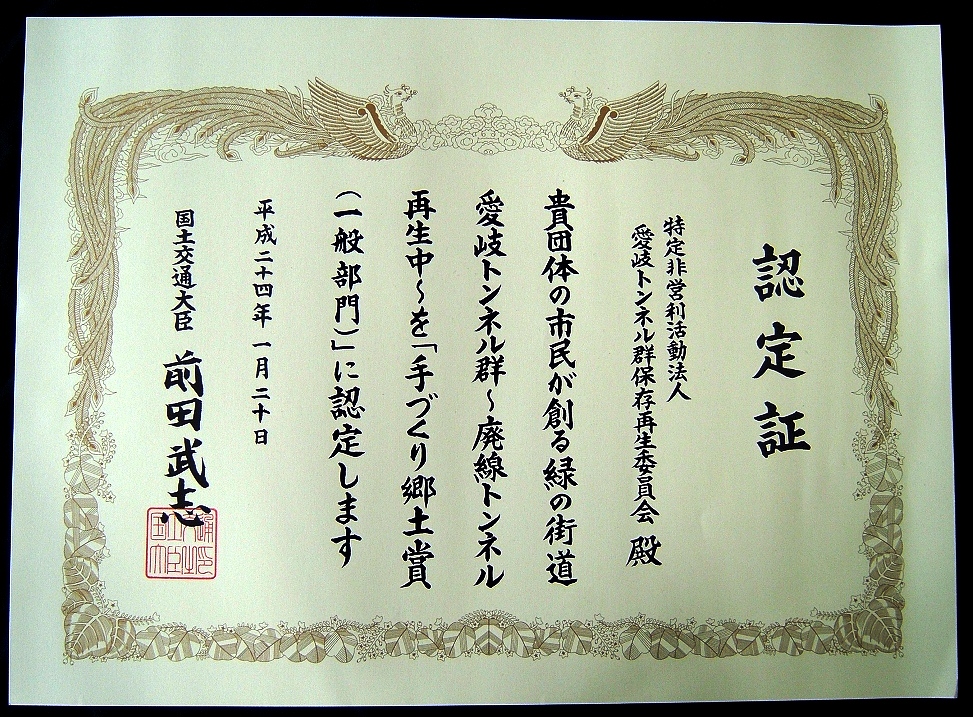 認定証
特定非営利活動法人
愛岐トンネル群保存再生委員会 殿
貴団体の市民が創る緑の街道
愛岐トンネル群～廃線トンネル
再生中～を「手づくり郷土賞
(一般部門)」に認定します
平成二十四年 一月二十日
国土交通大臣 前田武志